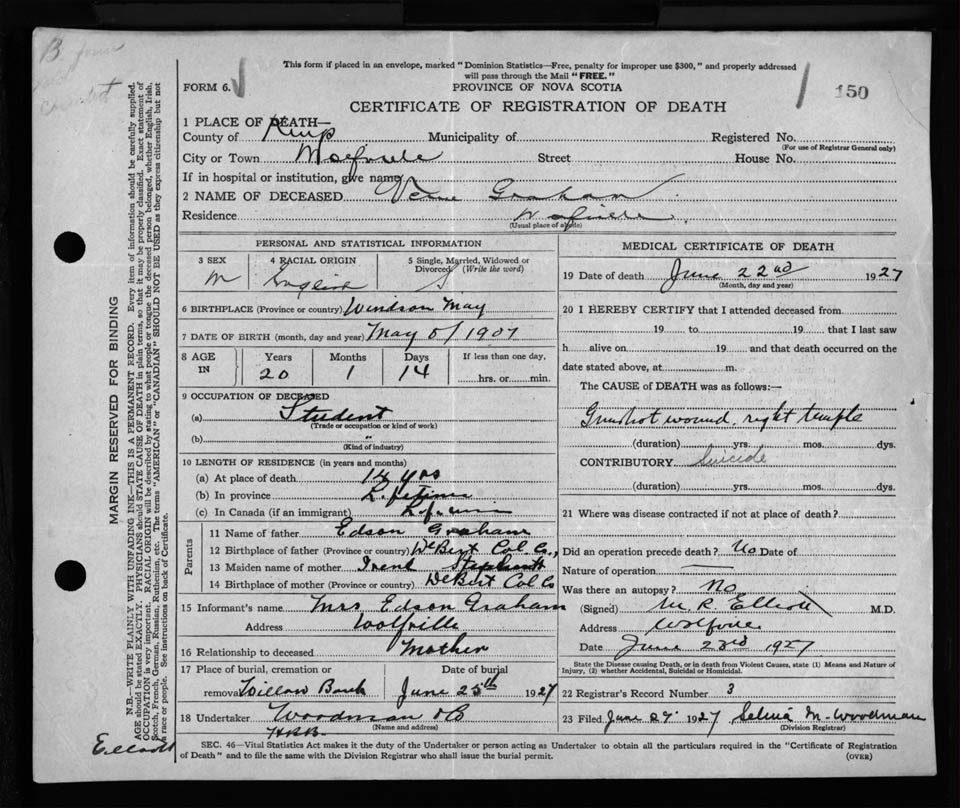 B from
This form if placed in an envelope, marked "Dominion Statistics—Free, penalty for improper use $300," and properly addressed
will pass through the Mail "FREE."
FORM 6.
PROVINCE OF NOVA SCOTIA
150
CERTIFICATE OF REGISTRATION OF DEATH
1 PLACE OF DEATH—
County of Kings Municipality of Registered No.
(For use of Registrar General only)
City or Town Wolfville Street House No.
If in hospital or institution, give name
2 NAME OF DECEASED Verne Graham
Residence Wolfville
(Usual place of abode)
PERSONAL AND STATISTICAL INFORMATION
3 SEX 4 RACIAL ORIGIN 5 Single, Married, Widowed or
Divorced (Write the word)
M English S
6 BIRTHPLACE (Province or country) Windsor
7 DATE OF BIRTH (month, day and year) May 8/1907
8 AGE IN Years Months Days If less than one day,
20 1 14 hrs. or min.
9 OCCUPATION OF DECEASED
(a) Student
(Trade or occupation or kind of work)
(b) "
(Kind of industry)
10 LENGTH OF RESIDENCE (in years and months)
(a) At place of death 14 yrs
(b) In province Lifetime
(c) In Canada (if an immigrant) Lifetime
Parents
11 Name of father Edson Graham
12 Birthplace of father (Province or country) DeBert Col. Co.,
13 Maiden name of mother
14 Birthplace of mother (Province or country) DeBert Col Co
15 Informant's name Mrs Edson Graham
Address Wolfville
16 Relationship to deceased Mother
17 Place of burial, cremation or Date of burial
removal Willow Bank June 25th 1927
18 Undertaker Woodman & Co
(Name and address)
H.B.B.
MEDICAL CERTIFICATE OF DEATH
19 Date of death June 22nd 1927
(Month, day and year)
20 I HEREBY CERTIFY that I attended deceased from
19 to 19 that I last saw
h alive on 19 and that death occurred on the
date stated above, at m.
The CAUSE OF DEATH was as follows:—
Gunshot wound, right temple
(duration) yrs. mos. dys.
CONTRIBUTORY Suicide
(duration) yrs. mos. dys.
21 Where was disease contracted if not at place of death?
Did an operation precede death? No Date of
Nature of operation
Was there an autopsy? No
(Signed) M. R. Elliott M.D.
Address Wolfville
Date June 23rd 1927
State the Disease causing Death, or in death from Violent Causes, state (1) Means and Nature of
Injury, (2) whether Accidental, Suicidal or Homicidal.
22 Registrar's Record Number 3
23 Filed June 27 1927 Selina M. Woodman
(Division Registrar)
SEC. 46—Vital Statistics Act makes it the duty of the Undertaker or person acting as Undertaker to obtain all the particulars required in the "Certificate of Registration
of Death" and to file the same with the Division Registrar who shall issue the burial permit. (OVER)
MARGIN RESERVED FOR BINDING
N.B.—WRITE PLAINLY WITH UNFADING INK—THIS IS A PERMANENT RECORD. Every item of information should be carefully supplied.
AGE should be stated EXACTLY. PHYSICIANS should STATE CAUSE OF DEATH in plain terms, so that it may be properly classified. Exact statement of
OCCUPATION is very important. RACIAL ORIGIN will be described by stating to what people or tongue the deceased person belonged, whether English, Irish,
Scotch, French, German, Russian, Ruthenian, etc. The terms "AMERICAN" or "CANADIAN" SHOULD NOT BE USED as they express citizenship but not
a race or people. See instructions on back of Certificate.
Elliott